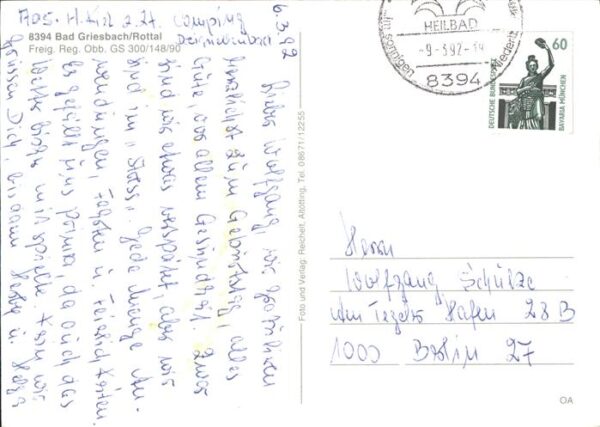 Abs. H. Kirk z.Zt. Camping
6.3.92
8394 Bad Griesbach/Rottal
Freig. Reg. Obb. GS 300/148/90
Lieber Wolfgang, wir gratulieren
herzlichst zum Geburtstag, alles
Gute, vor allem Gesundheit. Zwar
sind wir etwas verspätet, aber wir
sind im "Stress". Jede Menge An-
wendungen, Fasten u. Feierlichkeiten.
Es gefällt uns prima, da auch das
Wetter mitspielt.
Grüssen Dich, bis dann
Foto und Verlag: Reichelt, Altötting, Tel. 08671/12255
HEILBAD
-9-3.92-14
8394
im sonnigen Niederb
60
DEUTSCHE BUNDESPOST
BAVARIA MÜNCHEN
Herrn
Wolfgang Schulze
Am Tegeler Hafen 28 B
1000 Berlin 27
OA